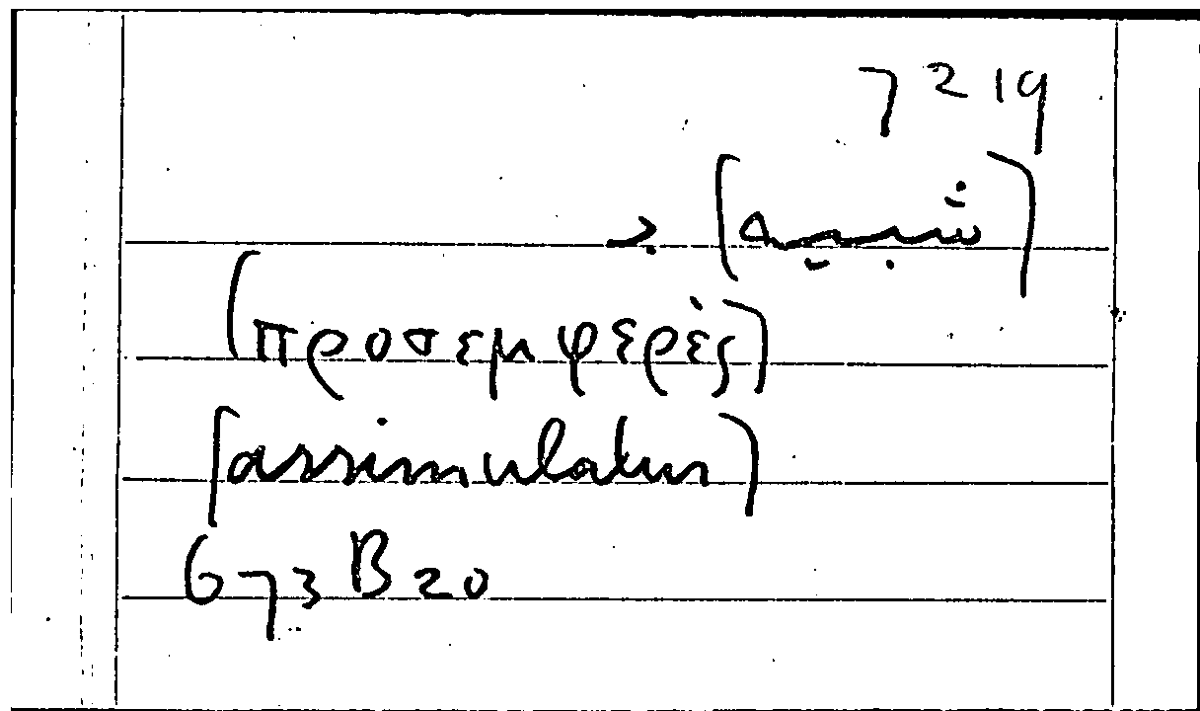 7 2 19
(شبيه) ب
(προσεμφερές)
(assimulatur)
673 B 20